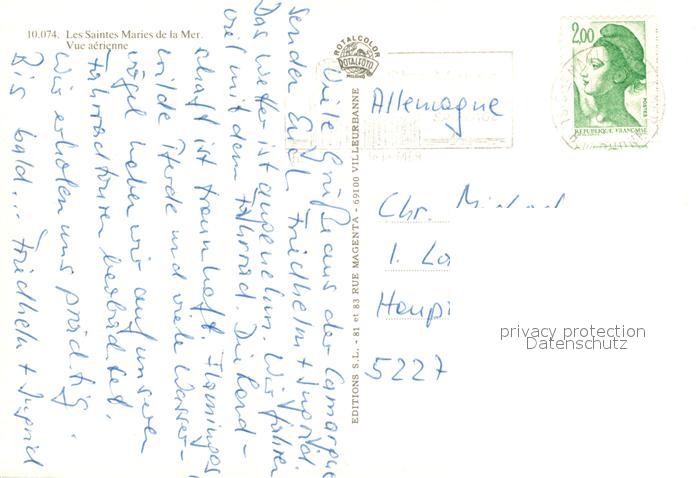 10.074. Les Saintes Maries de la Mer.
Vue aérienne
ROTALCOLOR
ROTALFOTO
MILANO
2,00
POSTES 
REPUBLIQUE FRANÇAISE
Allemagne
EDITIONS S.L. - 81 et 83 RUE MAGENTA - 69100 VILLEURBANNE
Viele Grüße aus der Camargue
senden Euch Friedhelm + Ingrid.
Das Wetter ist angenehm. Wir fahren
viel mit dem Fahrrad. Die Land-
schaft ist traumhaft. Flamingos,
wilde Pferde und viele Wasser-
vögel haben wir auf unseren
Fahrradtouren beobachtet.
Wir erholen uns prächtig.
Bis bald... Friedhelm + Ingrid
Chr.
1. La
Haupt
5227
privacy protection
Datenschutz